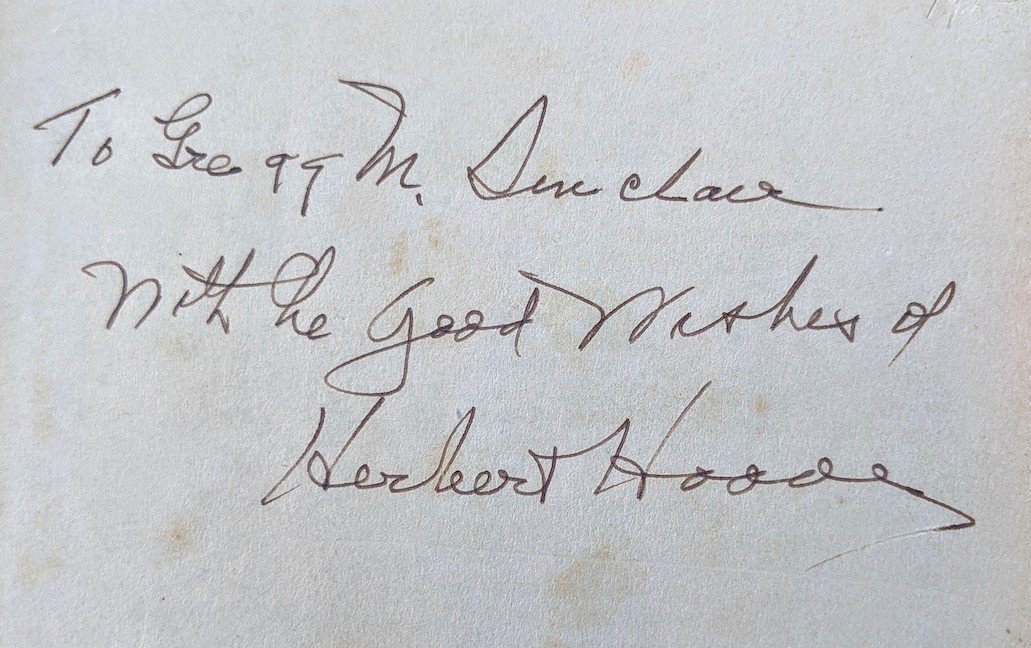 To Gregg M. Sinclair
With the Good Wishes of
Herbert Hoover